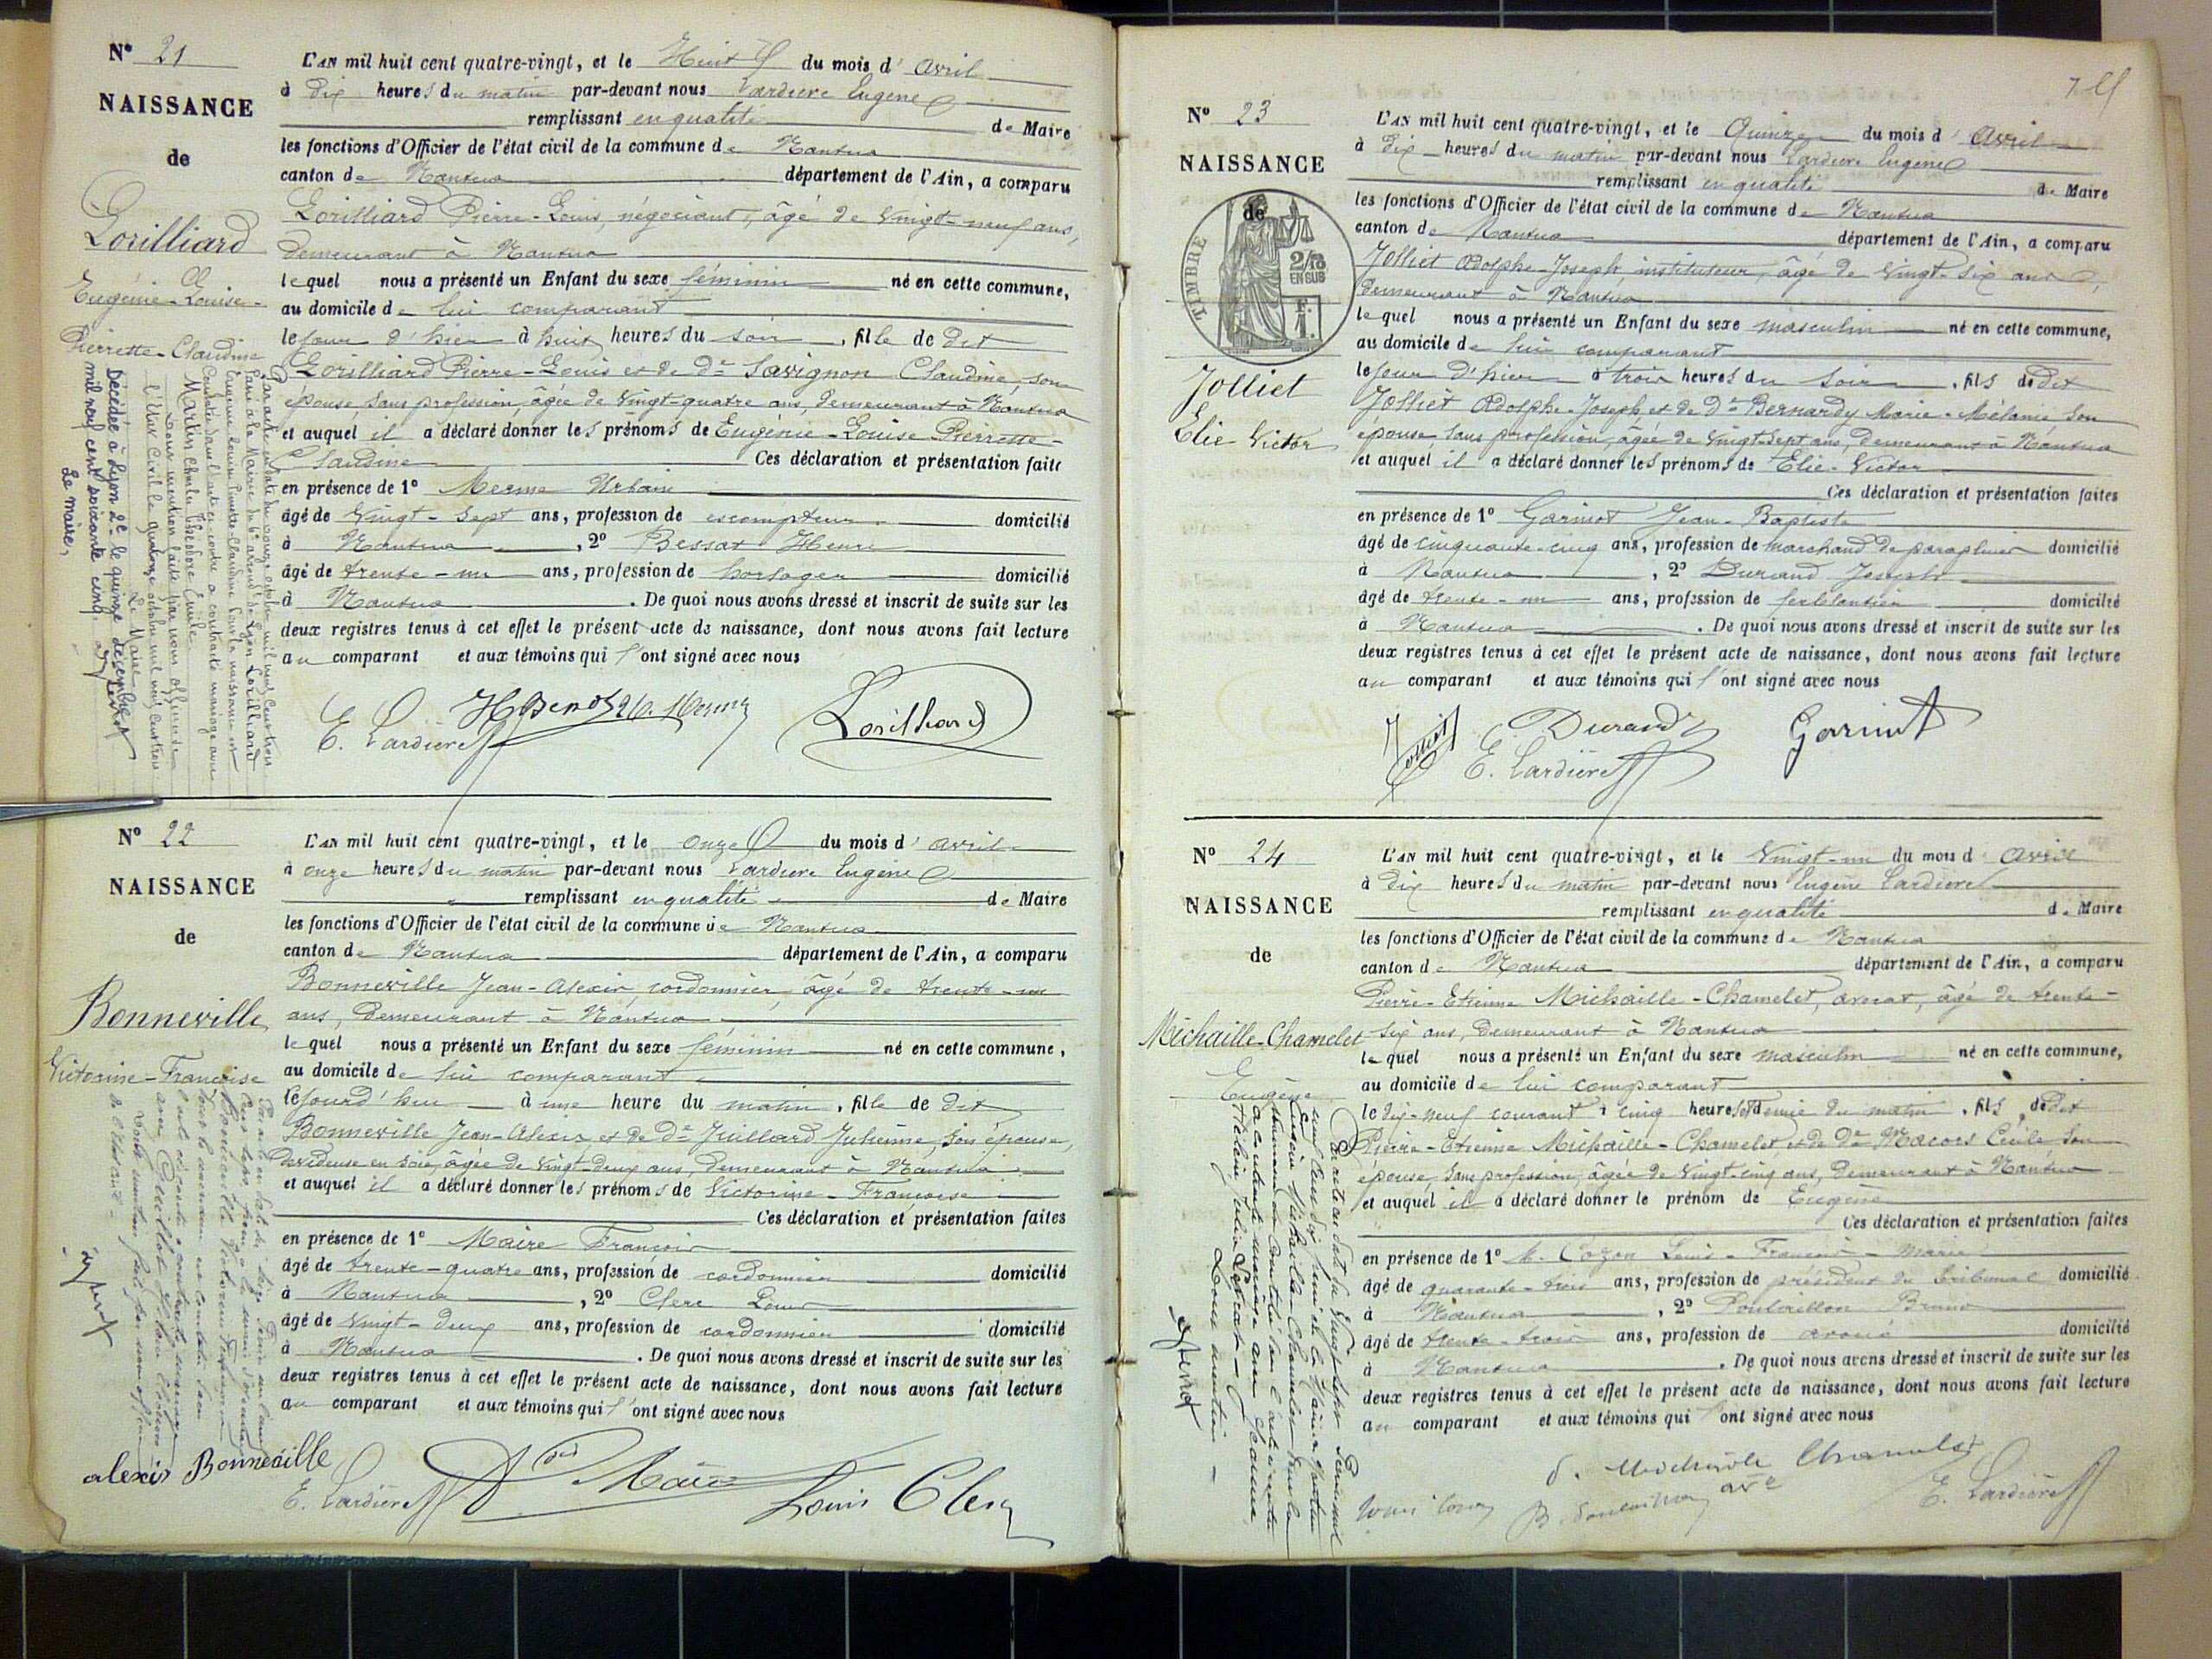 N° 21
NAISSANCE
de
Lorilliard
Eugénie-Louise-
Pierrette-Claudine
L'AN mil huit cent quatre-vingt, et le Huit du mois d' avril
à dix heures du matin par-devant nous Lardière Eugène
remplissant en qualité de Maire
les fonctions d'Officier de l'état civil de la commune de Nantua
canton de Nantua département de l'Ain, a comparu
Lorilliard Pierre-Louis, négociant, âgé de vingt-neuf ans,
demeurant à Nantua
lequel nous a présenté un Enfant du sexe féminin né en cette commune,
au domicile de lui comparant
le jour d'hier à huit heures du soir, fille de dit
Lorilliard Pierre-Louis et de De Savignon Claudine, son
épouse, sans profession, âgée de vingt-quatre ans, demeurant à Nantua
et auquel il a déclaré donner les prénoms de Eugénie-Louise Pierrette-
Claudine Ces déclaration et présentation faite
en présence de 1° Merme Urbain
âgé de vingt-sept ans, profession de escompteur domicilié
à Nantua, 2° Bessat Henri
âgé de trente-un ans, profession de horloger domicilié
à Nantua. De quoi nous avons dressé et inscrit de suite sur les
deux registres tenus à cet effet le présent acte de naissance, dont nous avons fait lecture
au comparant et aux témoins qui l'ont signé avec nous
E. Lardière
Lorilliard
Par acte en date du douze octobre mil neuf cent trois
passé à la Mairie du 6e arrond. de Lyon Lorilliard
Eugénie Louise Pierrette Claudine dont la naissance est
constatée dans l'acte ci-contre a contracté mariage avec
Martin Charles Théodore Emile.
Dont mention faite par nous officier de
l'Etat Civil le quatorze octobre mil neuf cent trois.
Le Maire
Décédée à Lyon 2e le quinze décembre
mil neuf cent soixante cinq.
Le maire,
N° 22
NAISSANCE
de
Bonneville
Victorine-Françoise
L'AN mil huit cent quatre-vingt, et le onze du mois d' avril
à onze heures du matin par-devant nous Lardière Eugène
remplissant en qualité de Maire
les fonctions d'Officier de l'état civil de la commune de Nantua
canton de Nantua département de l'Ain, a comparu
Bonneville Jean-Alexis, cordonnier, âgé de trente-un
ans, demeurant à Nantua
lequel nous a présenté un Enfant du sexe féminin né en cette commune,
au domicile de lui comparant
le jourd'hui à une heure du matin, fille de dit
Bonneville Jean-Alexis et de De Juillard Julienne, son épouse,
dévideuse en soie, âgée de vingt-deux ans, demeurant à Nantua
et auquel il a déclaré donner les prénoms de Victorine-Françoise
Ces déclaration et présentation faites
en présence de 1° Maire François
âgé de trente-quatre ans, profession de cordonnier domicilié
à Nantua, 2° Clerc Louis
âgé de vingt-deux ans, profession de cordonnier domicilié
à Nantua. De quoi nous avons dressé et inscrit de suite sur les
deux registres tenus à cet effet le présent acte de naissance, dont nous avons fait lecture
au comparant et aux témoins qui l'ont signé avec nous
alexis Bonneville
E. Lardière
Maire
Louis Clerc
N° 23
NAISSANCE
de
TIMBRE
2/10
EN SUS
F.
1.
Jolliet
Elie-Victor
L'AN mil huit cent quatre-vingt, et le Quinze du mois d' avril
à dix heures du matin par-devant nous Lardière Eugène
remplissant en qualité de Maire
les fonctions d'Officier de l'état civil de la commune de Nantua
canton de Nantua département de l'Ain, a comparu
Jolliet Adolphe-Joseph instituteur, âgé de vingt-six ans,
demeurant à Nantua
lequel nous a présenté un Enfant du sexe masculin né en cette commune,
au domicile de lui comparant
le jour d'hier à trois heures du soir, fils de dit
Jolliet Adolphe-Joseph et de De Bernardy Marie-Mélanie son
épouse sans profession, âgée de vingt-sept ans, demeurant à Nantua
et auquel il a déclaré donner les prénoms de Elie-Victor
Ces déclaration et présentation faites
en présence de 1° Garinot Jean-Baptiste
âgé de cinquante-cinq ans, profession de marchand de parapluies domicilié
à Nantua, 2° Durand Joseph
âgé de trente-un ans, profession de ferblantier domicilié
à Nantua. De quoi nous avons dressé et inscrit de suite sur les
deux registres tenus à cet effet le présent acte de naissance, dont nous avons fait lecture
au comparant et aux témoins qui l'ont signé avec nous
Jolliet
Durand
E. Lardière
Garinot
N° 24
NAISSANCE
de
Michaille-Chamelet
Eugène
L'AN mil huit cent quatre-vingt, et le Vingt-un du mois d' avril
à dix heures du matin par-devant nous Eugène Lardière
remplissant en qualité de Maire
les fonctions d'Officier de l'état civil de la commune de Nantua
canton de Nantua département de l'Ain, a comparu
Pierre-Etienne Michaille-Chamelet, avocat, âgé de trente-
six ans, demeurant à Nantua
lequel nous a présenté un Enfant du sexe masculin né en cette commune,
au domicile de lui comparant
le dix-neuf courant à cinq heures et demie du matin, fils de dit
Pierre-Etienne Michaille-Chamelet, et de De Macors Cécile son
épouse, sans profession, âgée de vingt-cinq ans, demeurant à Nantua
et auquel il a déclaré donner le prénom de Eugène
Ces déclaration et présentation faites
en présence de 1° M. Cozon Louis-François-Marie
âgé de quarante-trois ans, profession de président du tribunal domicilié
à Nantua, 2° Bruno
âgé de trente-trois ans, profession de avoué domicilié
à Nantua. De quoi nous avons dressé et inscrit de suite sur les
deux registres tenus à cet effet le présent acte de naissance, dont nous avons fait lecture
au comparant et aux témoins qui l'ont signé avec nous
E. Lardière